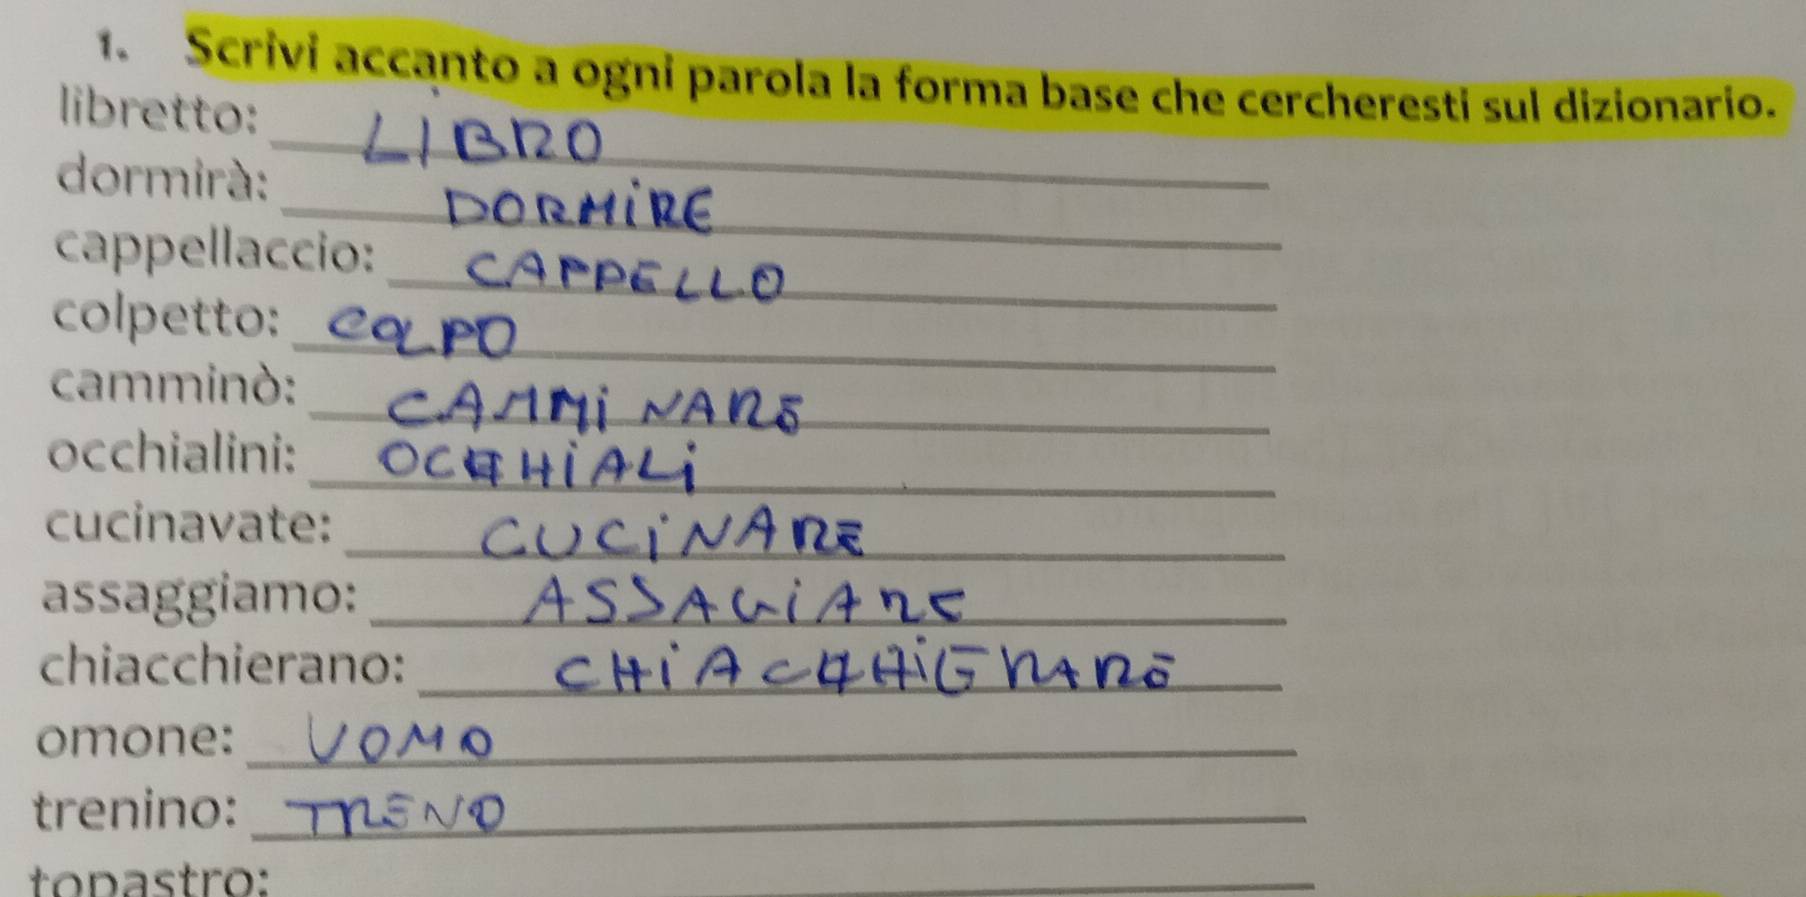 1. Scrivi accanto a ogni parola la forma base che cercheresti sul dizionario.
libretto: LIBRO
dormirà: DORMIRE
cappellaccio: CAPPELLO
colpetto: COLPO
camminò: CAMMINARE
occhialini: OCCHIALI
cucinavate: CUCINARE
assaggiamo: ASSAGIARE
chiacchierano: CHIACCHIERARE
omone: UOMO
trenino: TRENO
topastro: